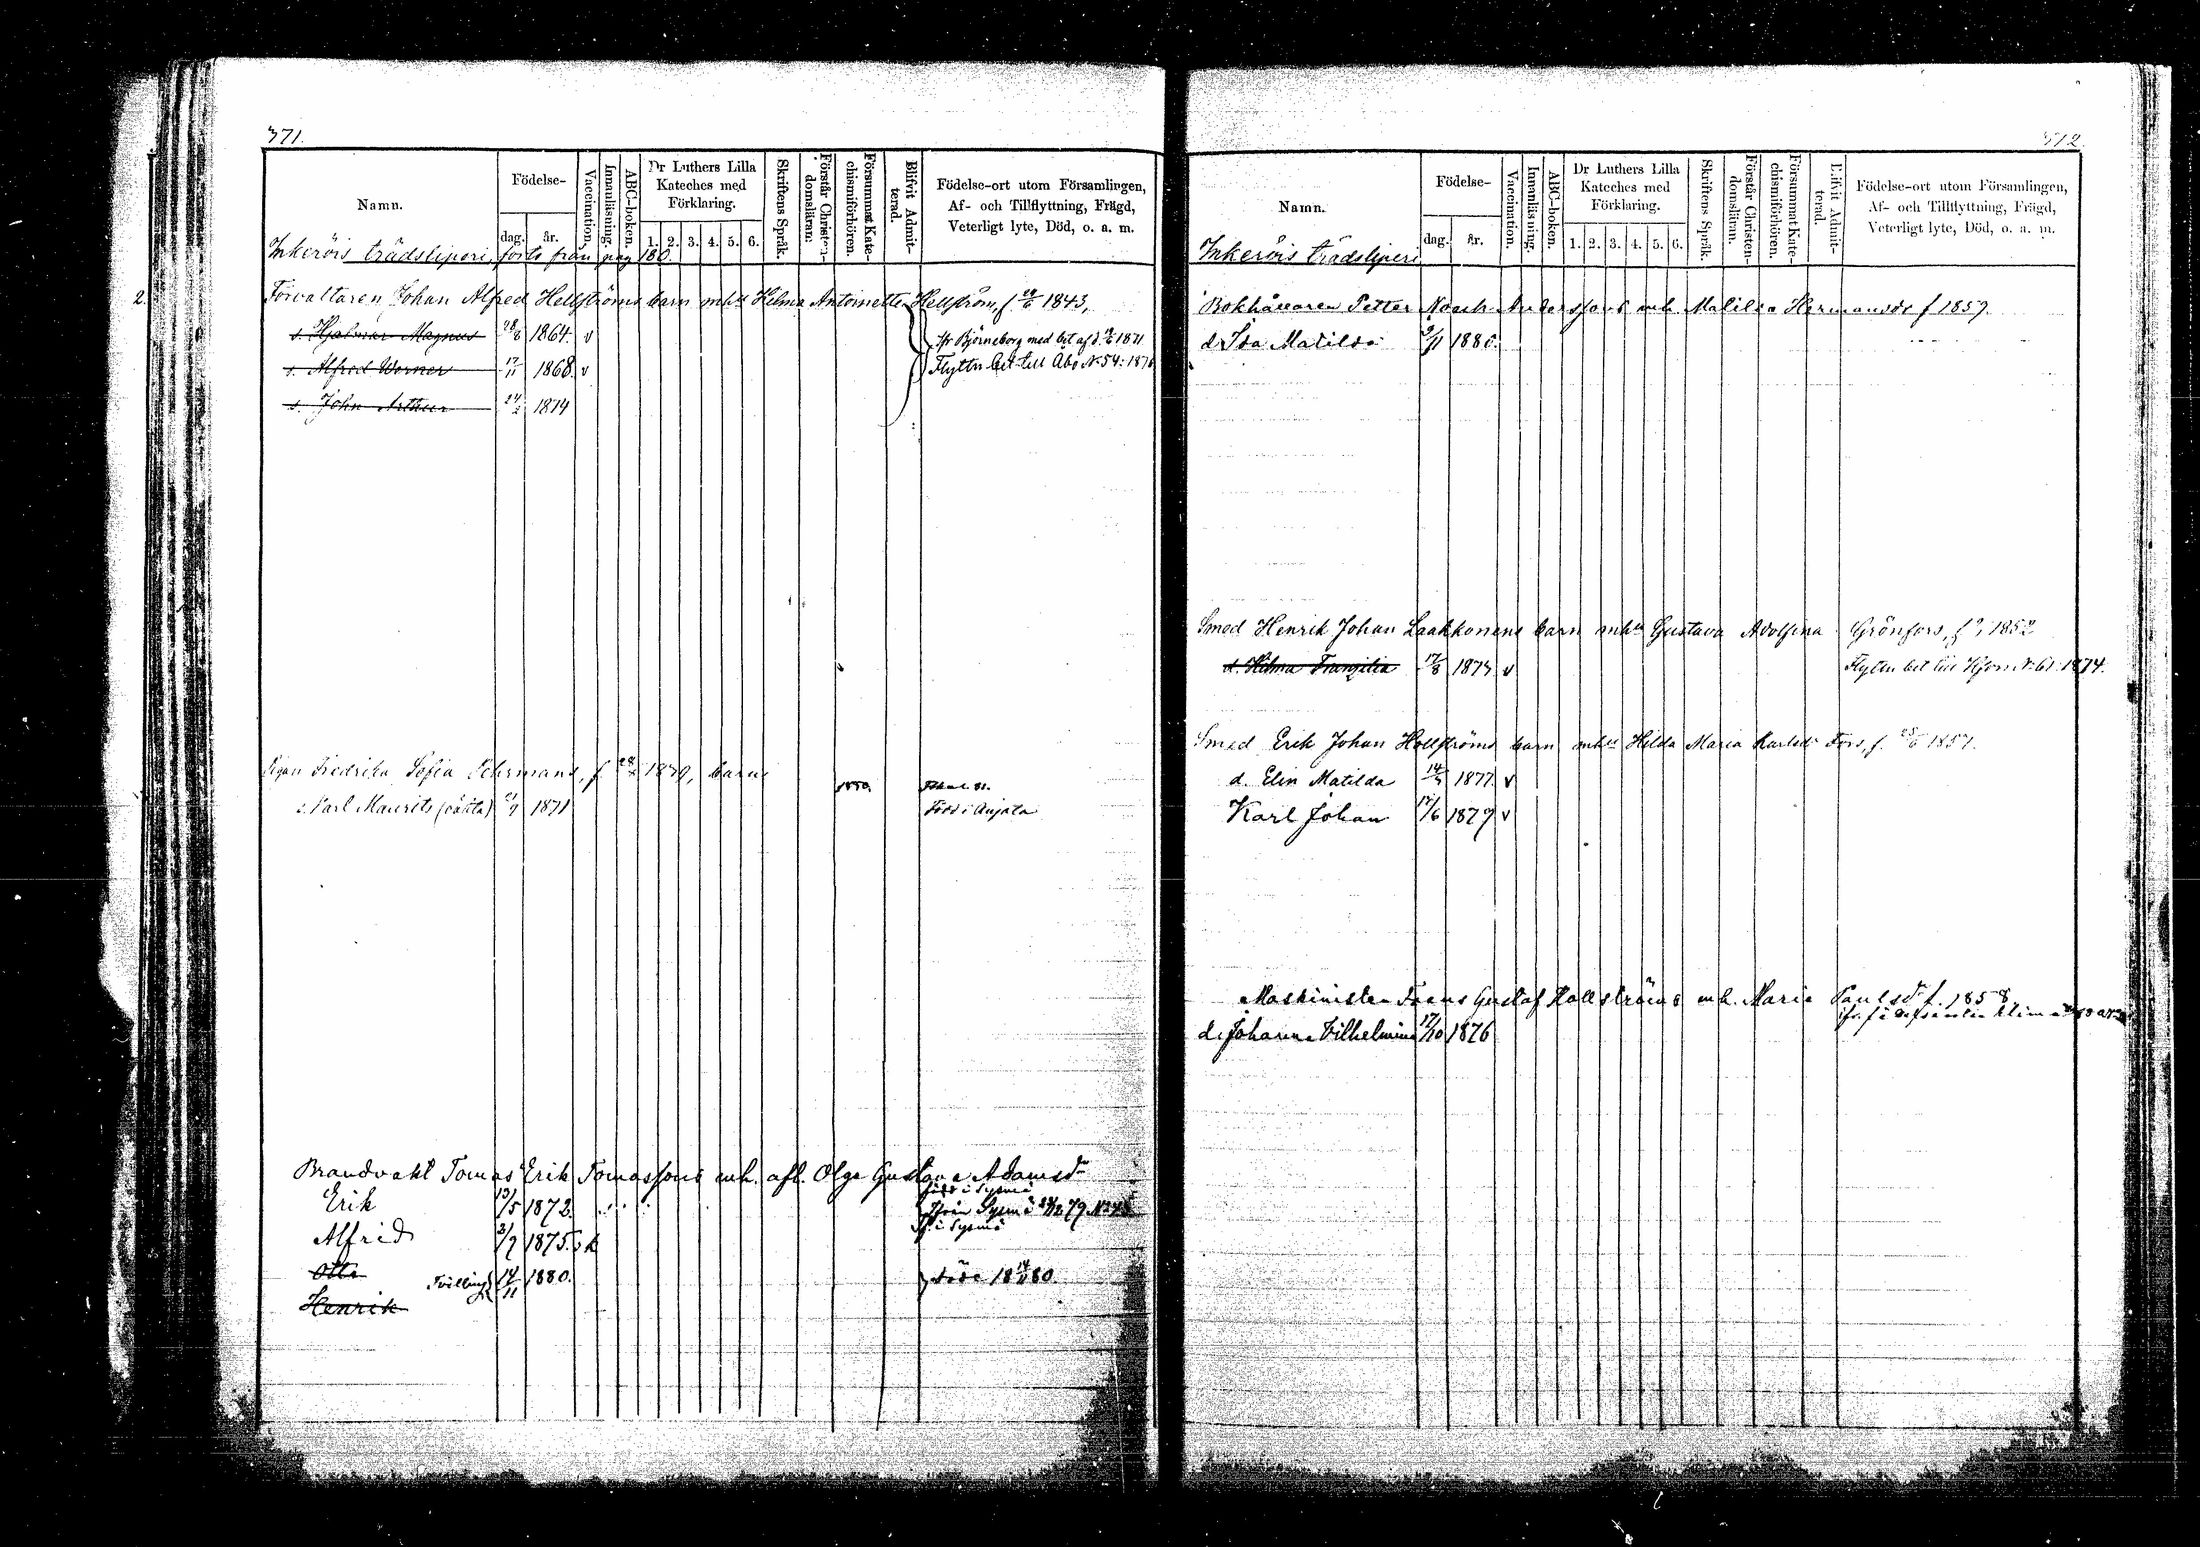 371.
Namn.
Födelse-
dag.
år.
Vaccination.
Innanläsning.
ABC-boken.
Dr Luthers Lilla
Kateches med
Förklaring.
1. 2. 3. 4. 5. 6.
Skriftens Språk.
Förstår Christen-
domsläran.
Försummat Kate-
chismiförhören.
Blifvit Admit-
terad.
Födelse-ort utom Församlingen,
Af- och Tillflyttning, Frägd,
Veterligt lyte, Död, o. a. m.
Inkerois trädsliperi, forts från pag 180.
2. Förvaltaren Johan Alfred Hellströms barn mhu Hilma Antoinette Hellström, f. 1843,
s. Hjalmar Magnus 28/8 1864. v
ifr Björneborg med bet af d. 1871
s. Alfred Werner 17/11 1868. v
Flyttn bet till Åbo N 54: 1876
s. John Arthur 24/2 1874
Pigan Fredrika Sofia barn
1880.
s. Karl Maurits (oäkta) 1871
Född i Anjala
Brandvakt Tomas Erik Tomassons mh. afl. Olga Gustava Adamsdr
född i Sysmä
Erik 13/5 1872.
från Sysmä 79 N
Alfrid 3/7 1875.
f. i Sysmä
Otto
Tvilling 14/11 1880.
döde 18 14/11 80.
Henrik
372.
Namn.
Födelse-
dag.
år.
Vaccination.
Innanläsning.
ABC-boken.
Dr Luthers Lilla
Kateches med
Förklaring.
1. 2. 3. 4. 5. 6.
Skriftens Språk.
Förstår Christen-
domsläran.
Försummat Kate-
chismiförhören.
Blifvit Admit-
terad.
Födelse-ort utom Församlingen,
Af- och Tillflyttning, Frägd,
Veterligt lyte, Död, o. a. m.
Inkerois trädsliperi
Bokhållaren Petter Noach Anderssons mh. Matilda Hermansdr f 1859.
d. Ida Matilda 9/11 1880.
Smed Henrik Johan Laakkonens barn mhu Gustava Adolfina Grönfors, f 1852
d. Hilma 17/8 1873 v
Flyttn bet till N 61: 1874.
Smed Erik Johan Hellströms barn mhu Hilda Maria Karlsdr Fors, f. 1857.
d. Elin Matilda 1877. v
Karl Johan 12/6 1879 v
Maskinisten Frans Gustaf Hallströms mh. Maria Paulsdr f. 1858
d. Johanna Vilhelmina 17/10 1876